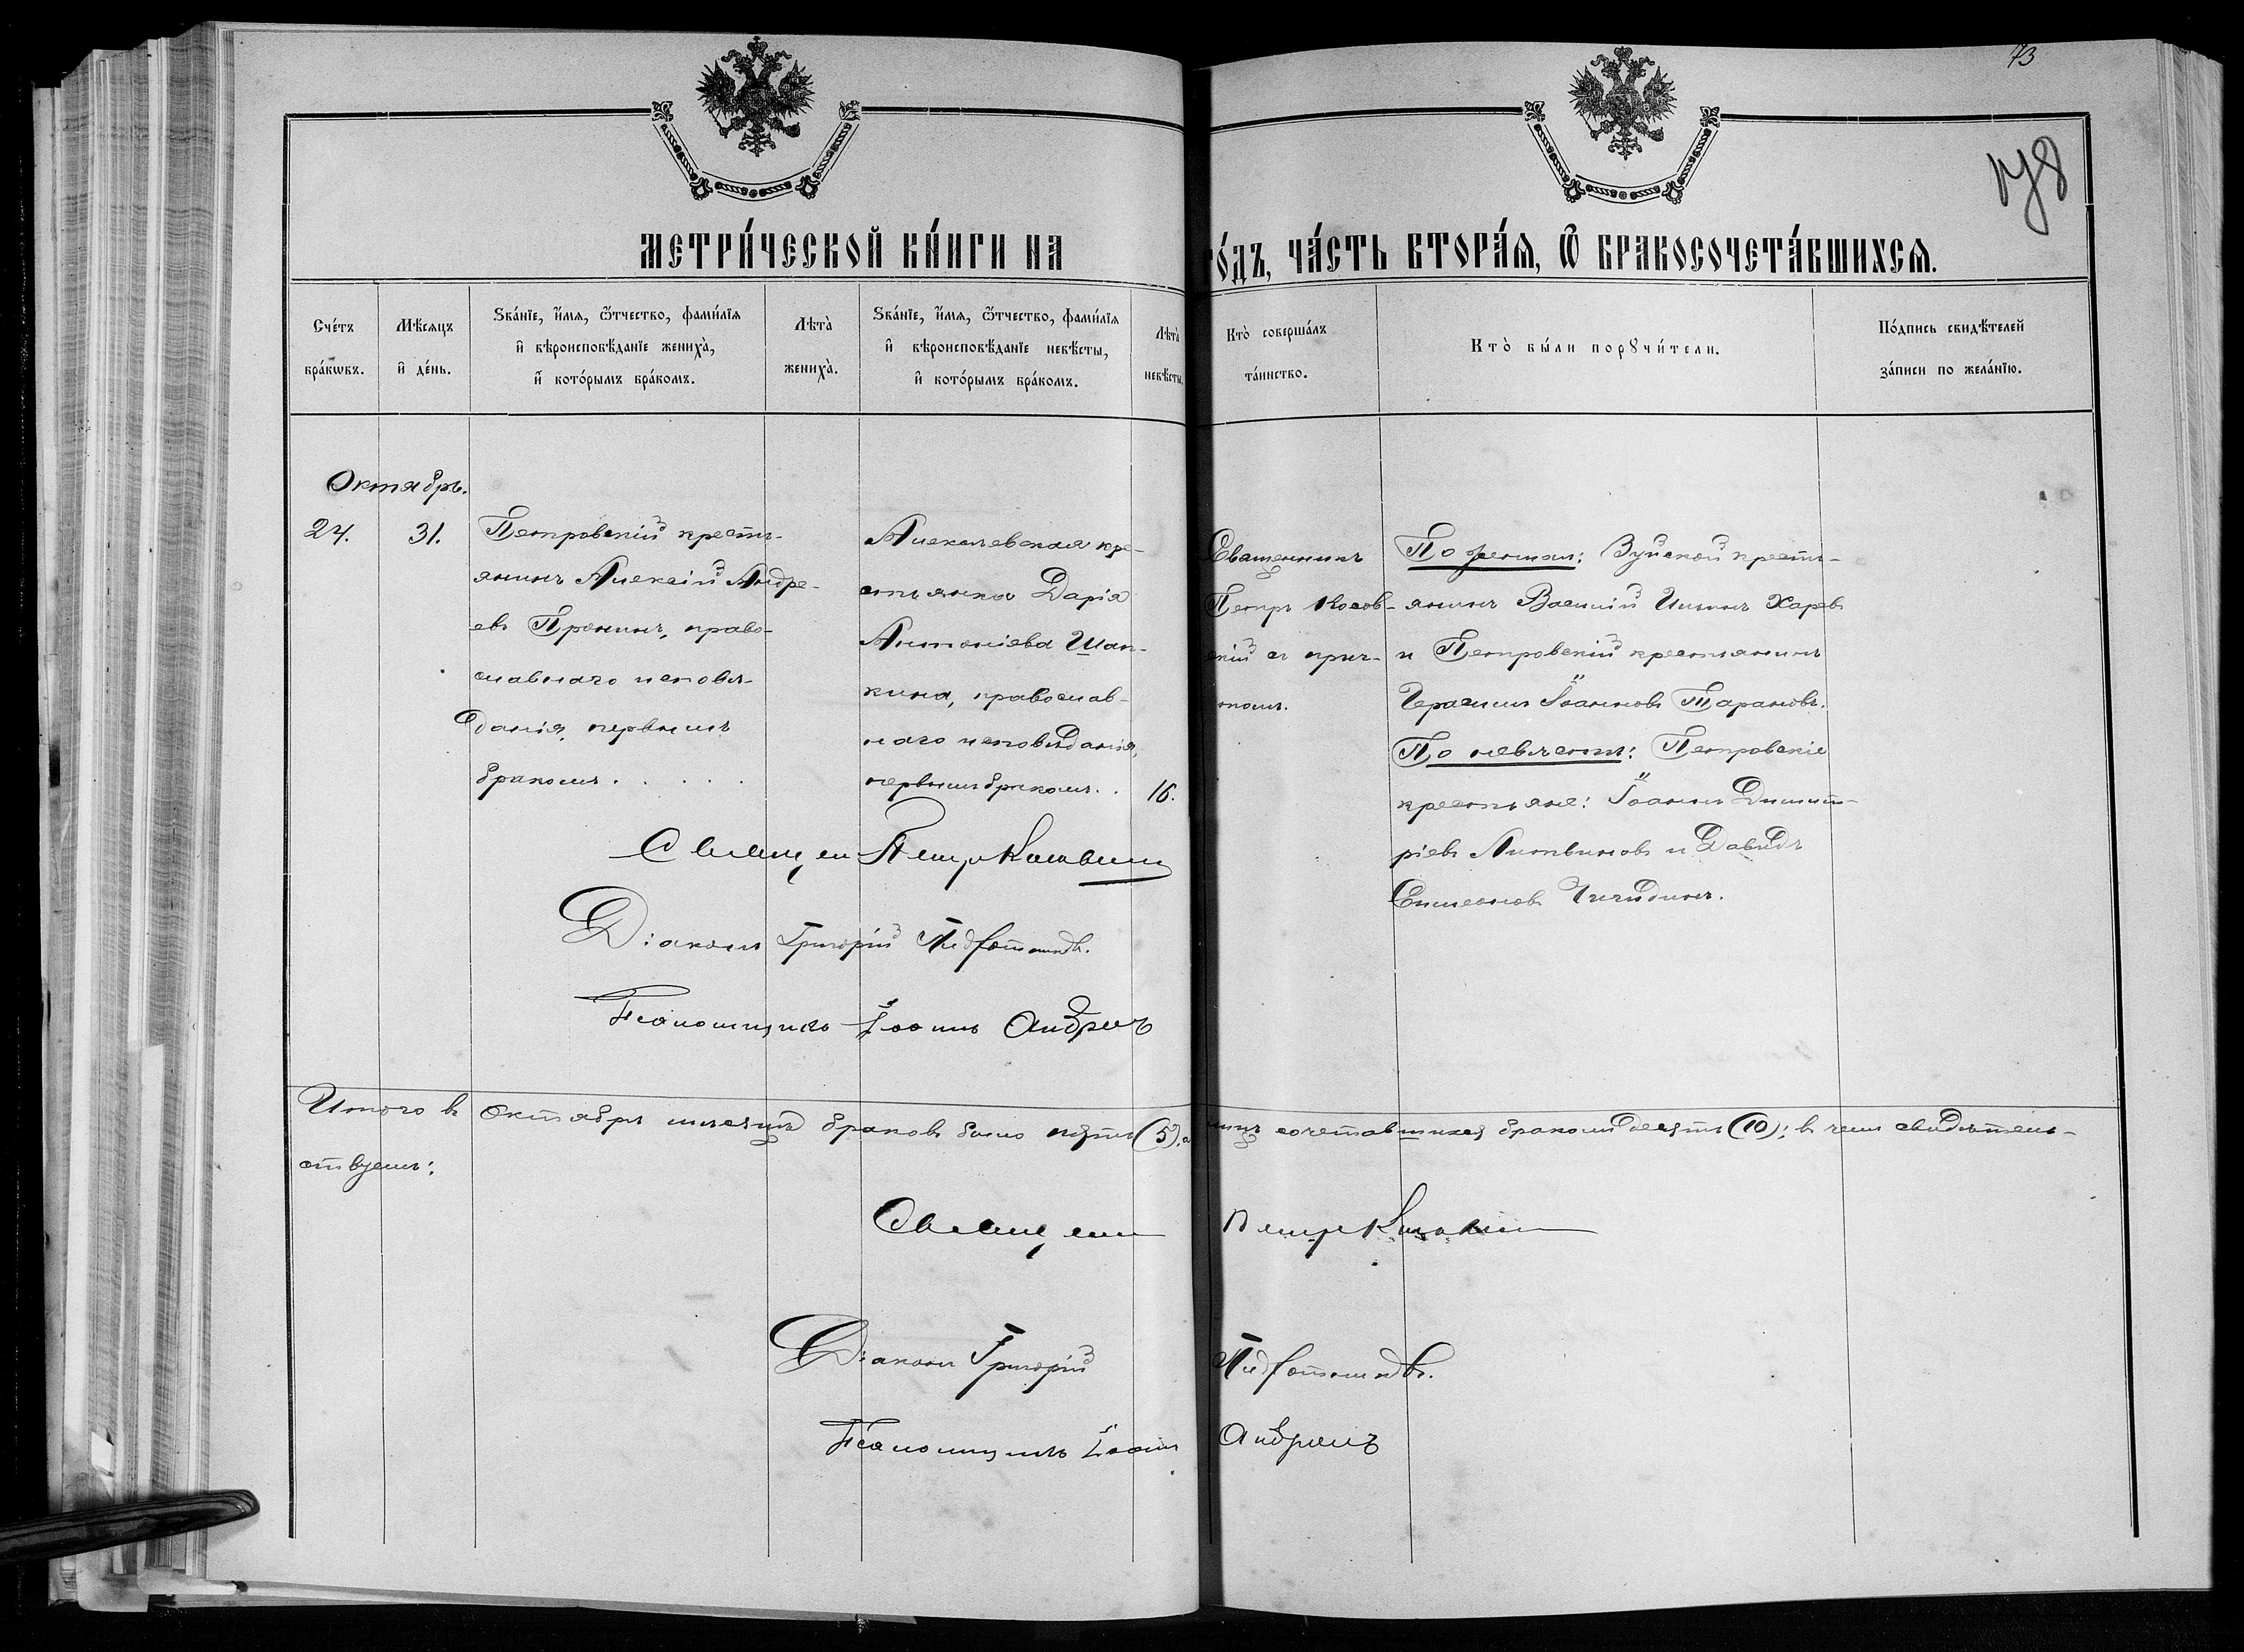 73
МЕТРИ́ЧЕСКОЙ КНИ́ГИ НА
ГО́ДЪ, ЧА́СТЬ ВТОРА́Ѧ, Ѿ БРАКОСОЧЕТА́ВШИХСѦ.
Сче́тъ бра́кѡвъ.
Мѣ́сѧцъ и҆ де́нь.
Ѕва́нїе, и҆́мѧ, ѻ҆́тчество, фами́лїѧ
и҆ вѣроисповѣ́данїе жениха̀,
и҆ кото́рымъ бра́комъ.
Лѣта̀ жениха̀.
Ѕва́нїе, и҆́мѧ, ѻ҆́тчество, фами́лїѧ
и҆ вѣроисповѣ́данїе невѣ́сты,
и҆ кото́рымъ бра́комъ.
Лѣта̀ невѣ́сты.
Кто̀ соверша́лъ
та́инство.
Кто̀ бы́ли порꙋчи́тели.
По́дпись свидѣ́телей
за́писи по жела́нїю.
Октябрь.
24.
31.
Петровскій кресть-
янинъ Алексій Андре-
евъ Пронинъ, право-
славнаго исповѣ-
данія, первымъ
бракомъ . . . .
кре-
стьянка Дарія
Антоніева Шап-
кина, православ-
наго исповѣданія,
первымъ бракомъ. .
16.
Священникъ
Петръ Косов-
скій съ прич-
томъ.
По женихѣ: Зуйской кресть-
янинъ Василій Харевъ
и Петровскій крестьянинъ
Герасимъ Іоанновъ Тарановъ.
По невѣстѣ: Петровскіе
крестьяне: Іоаннъ Димит-
ріевъ Литвиновъ и Давидъ
Симеоновъ
Священ Петръ Косовскій
Діаконъ Григорій
Псаломщикъ Іоаннъ
Итого въ Октябрѣ мѣсяцѣ браковъ было пять (5), а лицъ сочетавшихся бракомъ десять (10); въ чемъ свидѣтель-
ствуемъ:
Священ Петръ Косовскій
Діаконъ Григорій
Псаломщикъ Іоаннъ